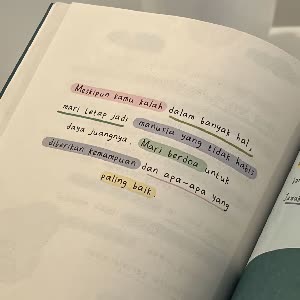 Meskipun kamu kalah dalam banyak hal,
mari tetap jadi manusia yang tidak habis
daya juangnya. Mari berdoa untuk
diberikan kemampuan dan apa-apa yang
paling baik.